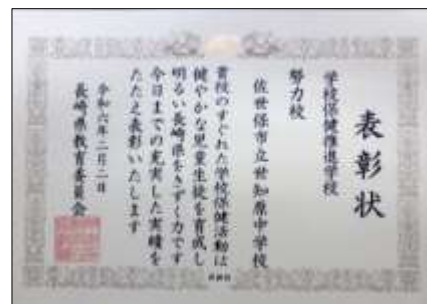 表彰状
学校保健推進学校
努力校
佐世保市立世知原中学校
貴校のすぐれた学校保健活動は
健やかな児童生徒を育成し
明るい長崎県をきずく力です
今日までの充実した実績を
たたえ表彰いたします
令和六年二月二日
長崎県教育委員会